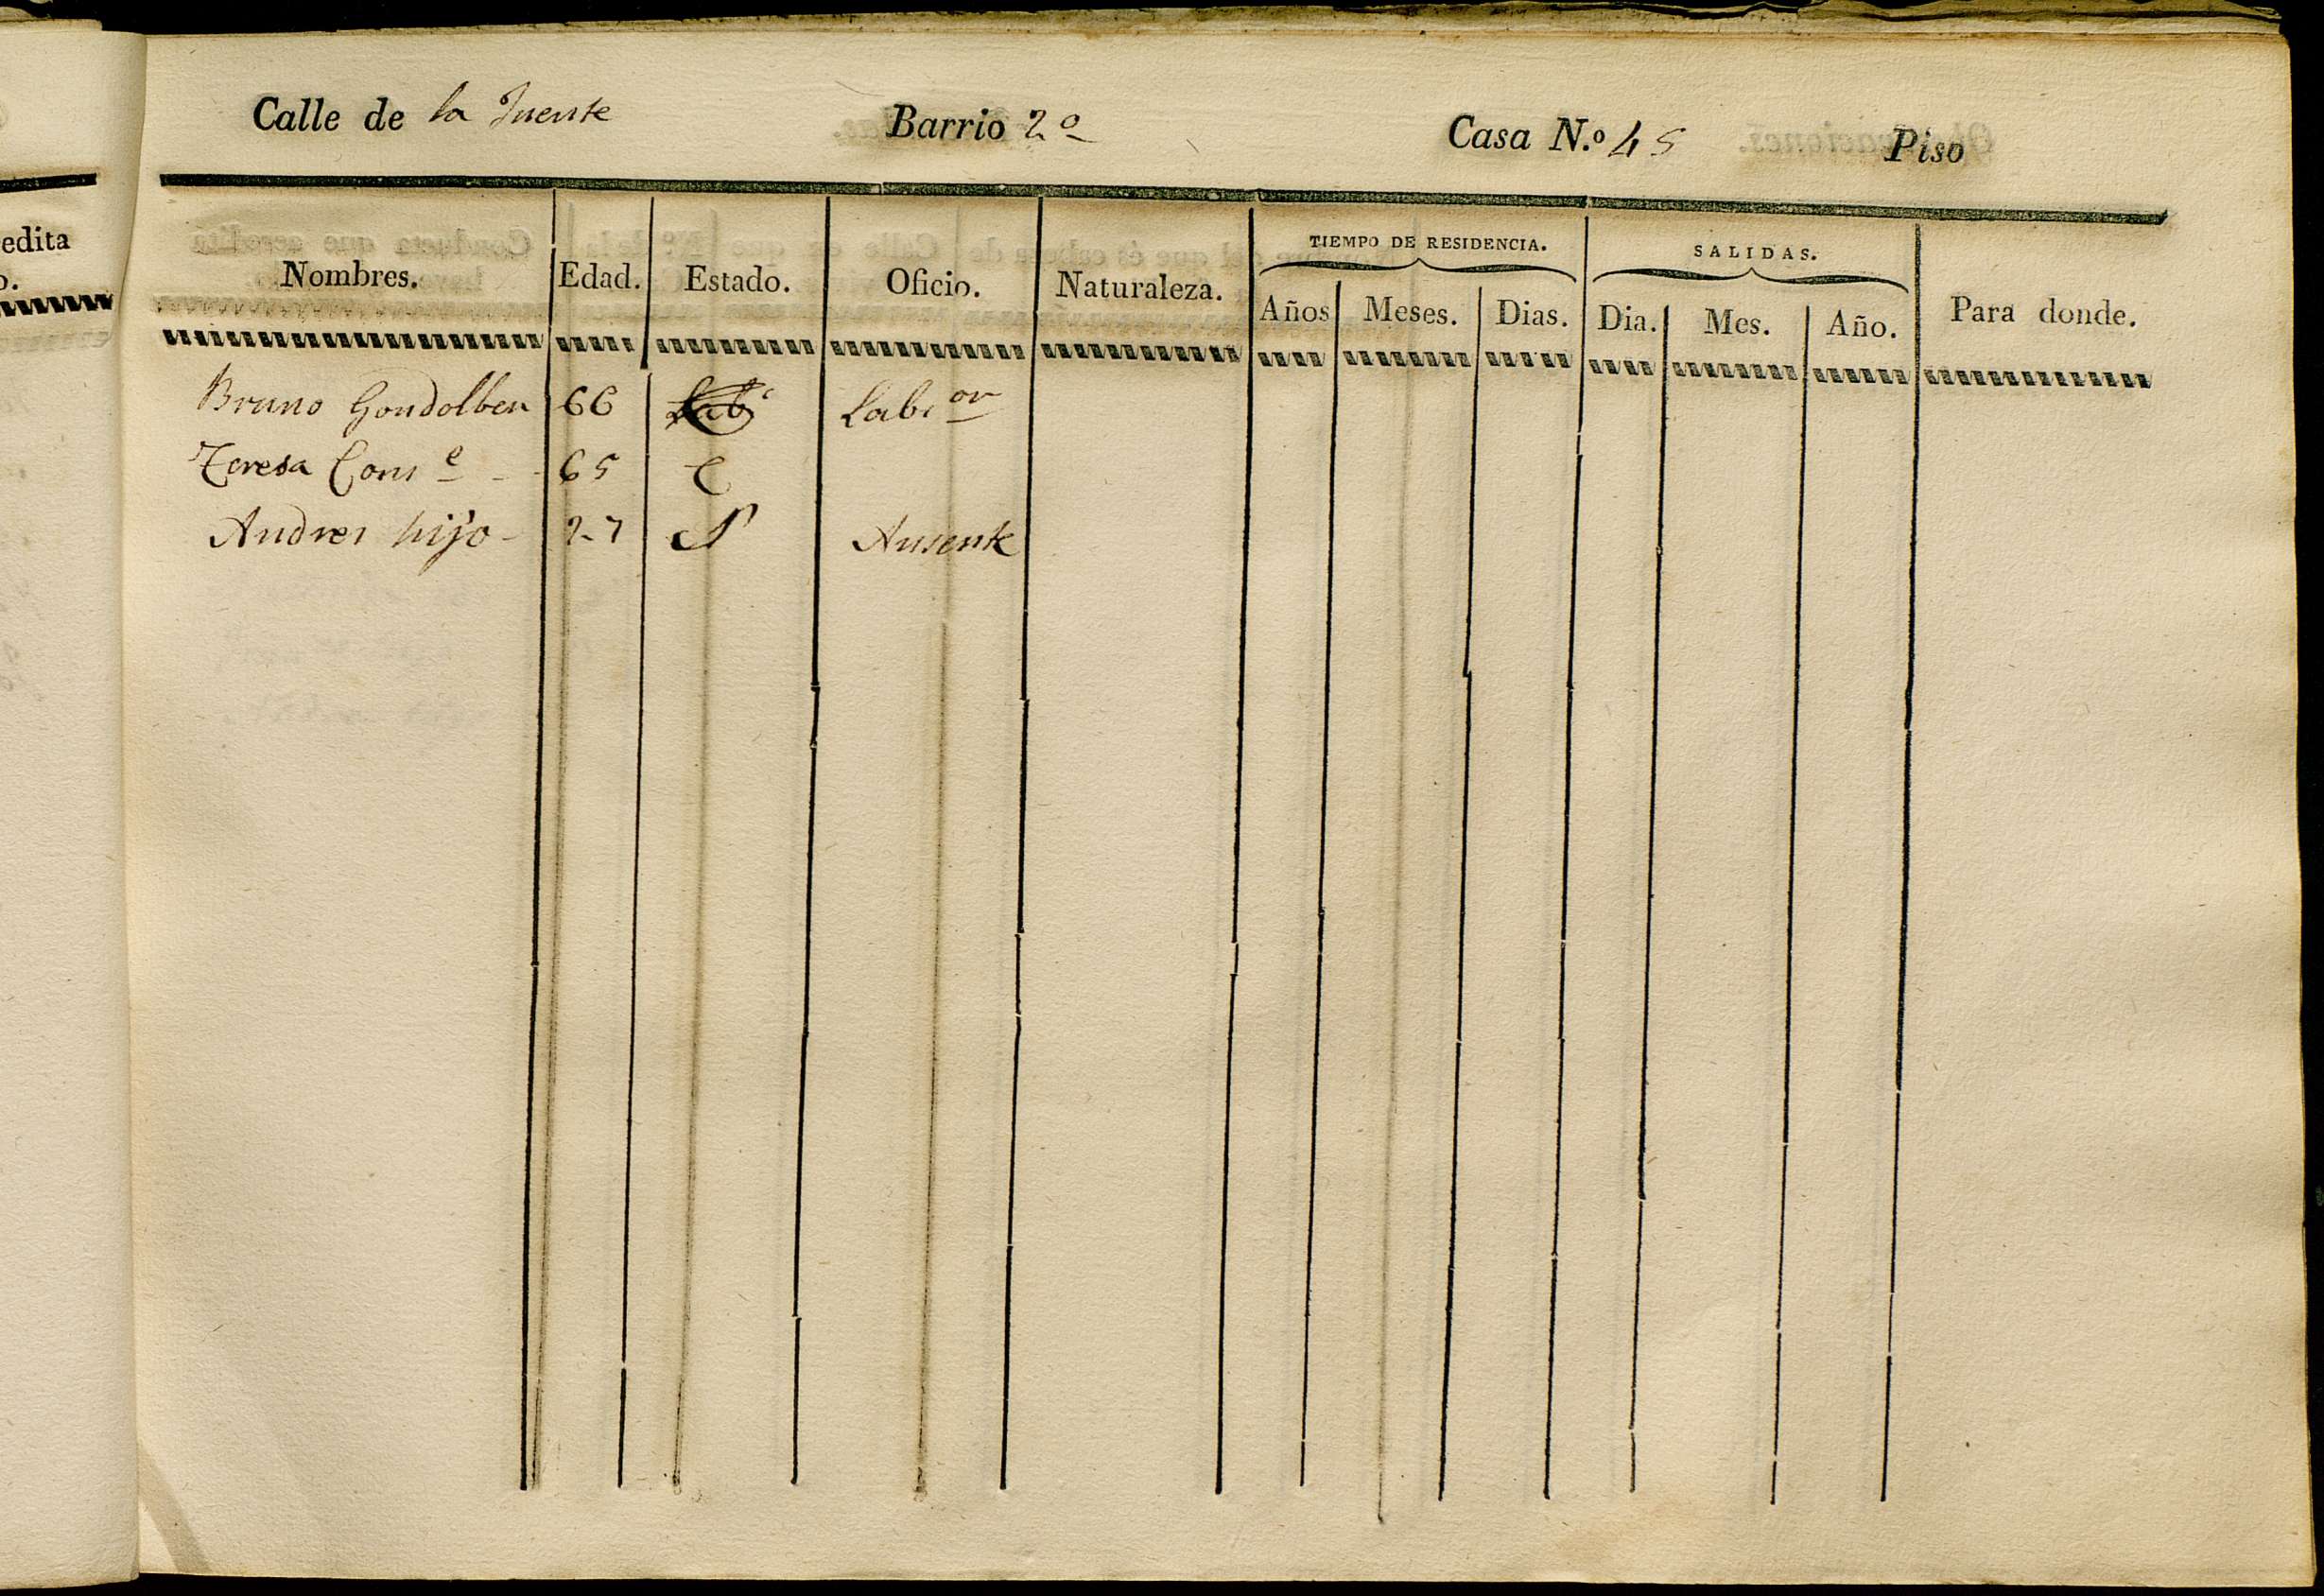 Calle de la Fuente Barrio 2º Casa N.º 45 Piso
edita
o.
TIEMPO DE RESIDENCIA. SALIDAS.
Nombres. Edad. Estado. Oficio. Naturaleza. Años Meses. Dias. Dia. Mes. Año. Para donde.
Bruno Gondolben 66 Labr Labr or
Teresa Cons e 65 C
Andres hijo 27 S Ausente